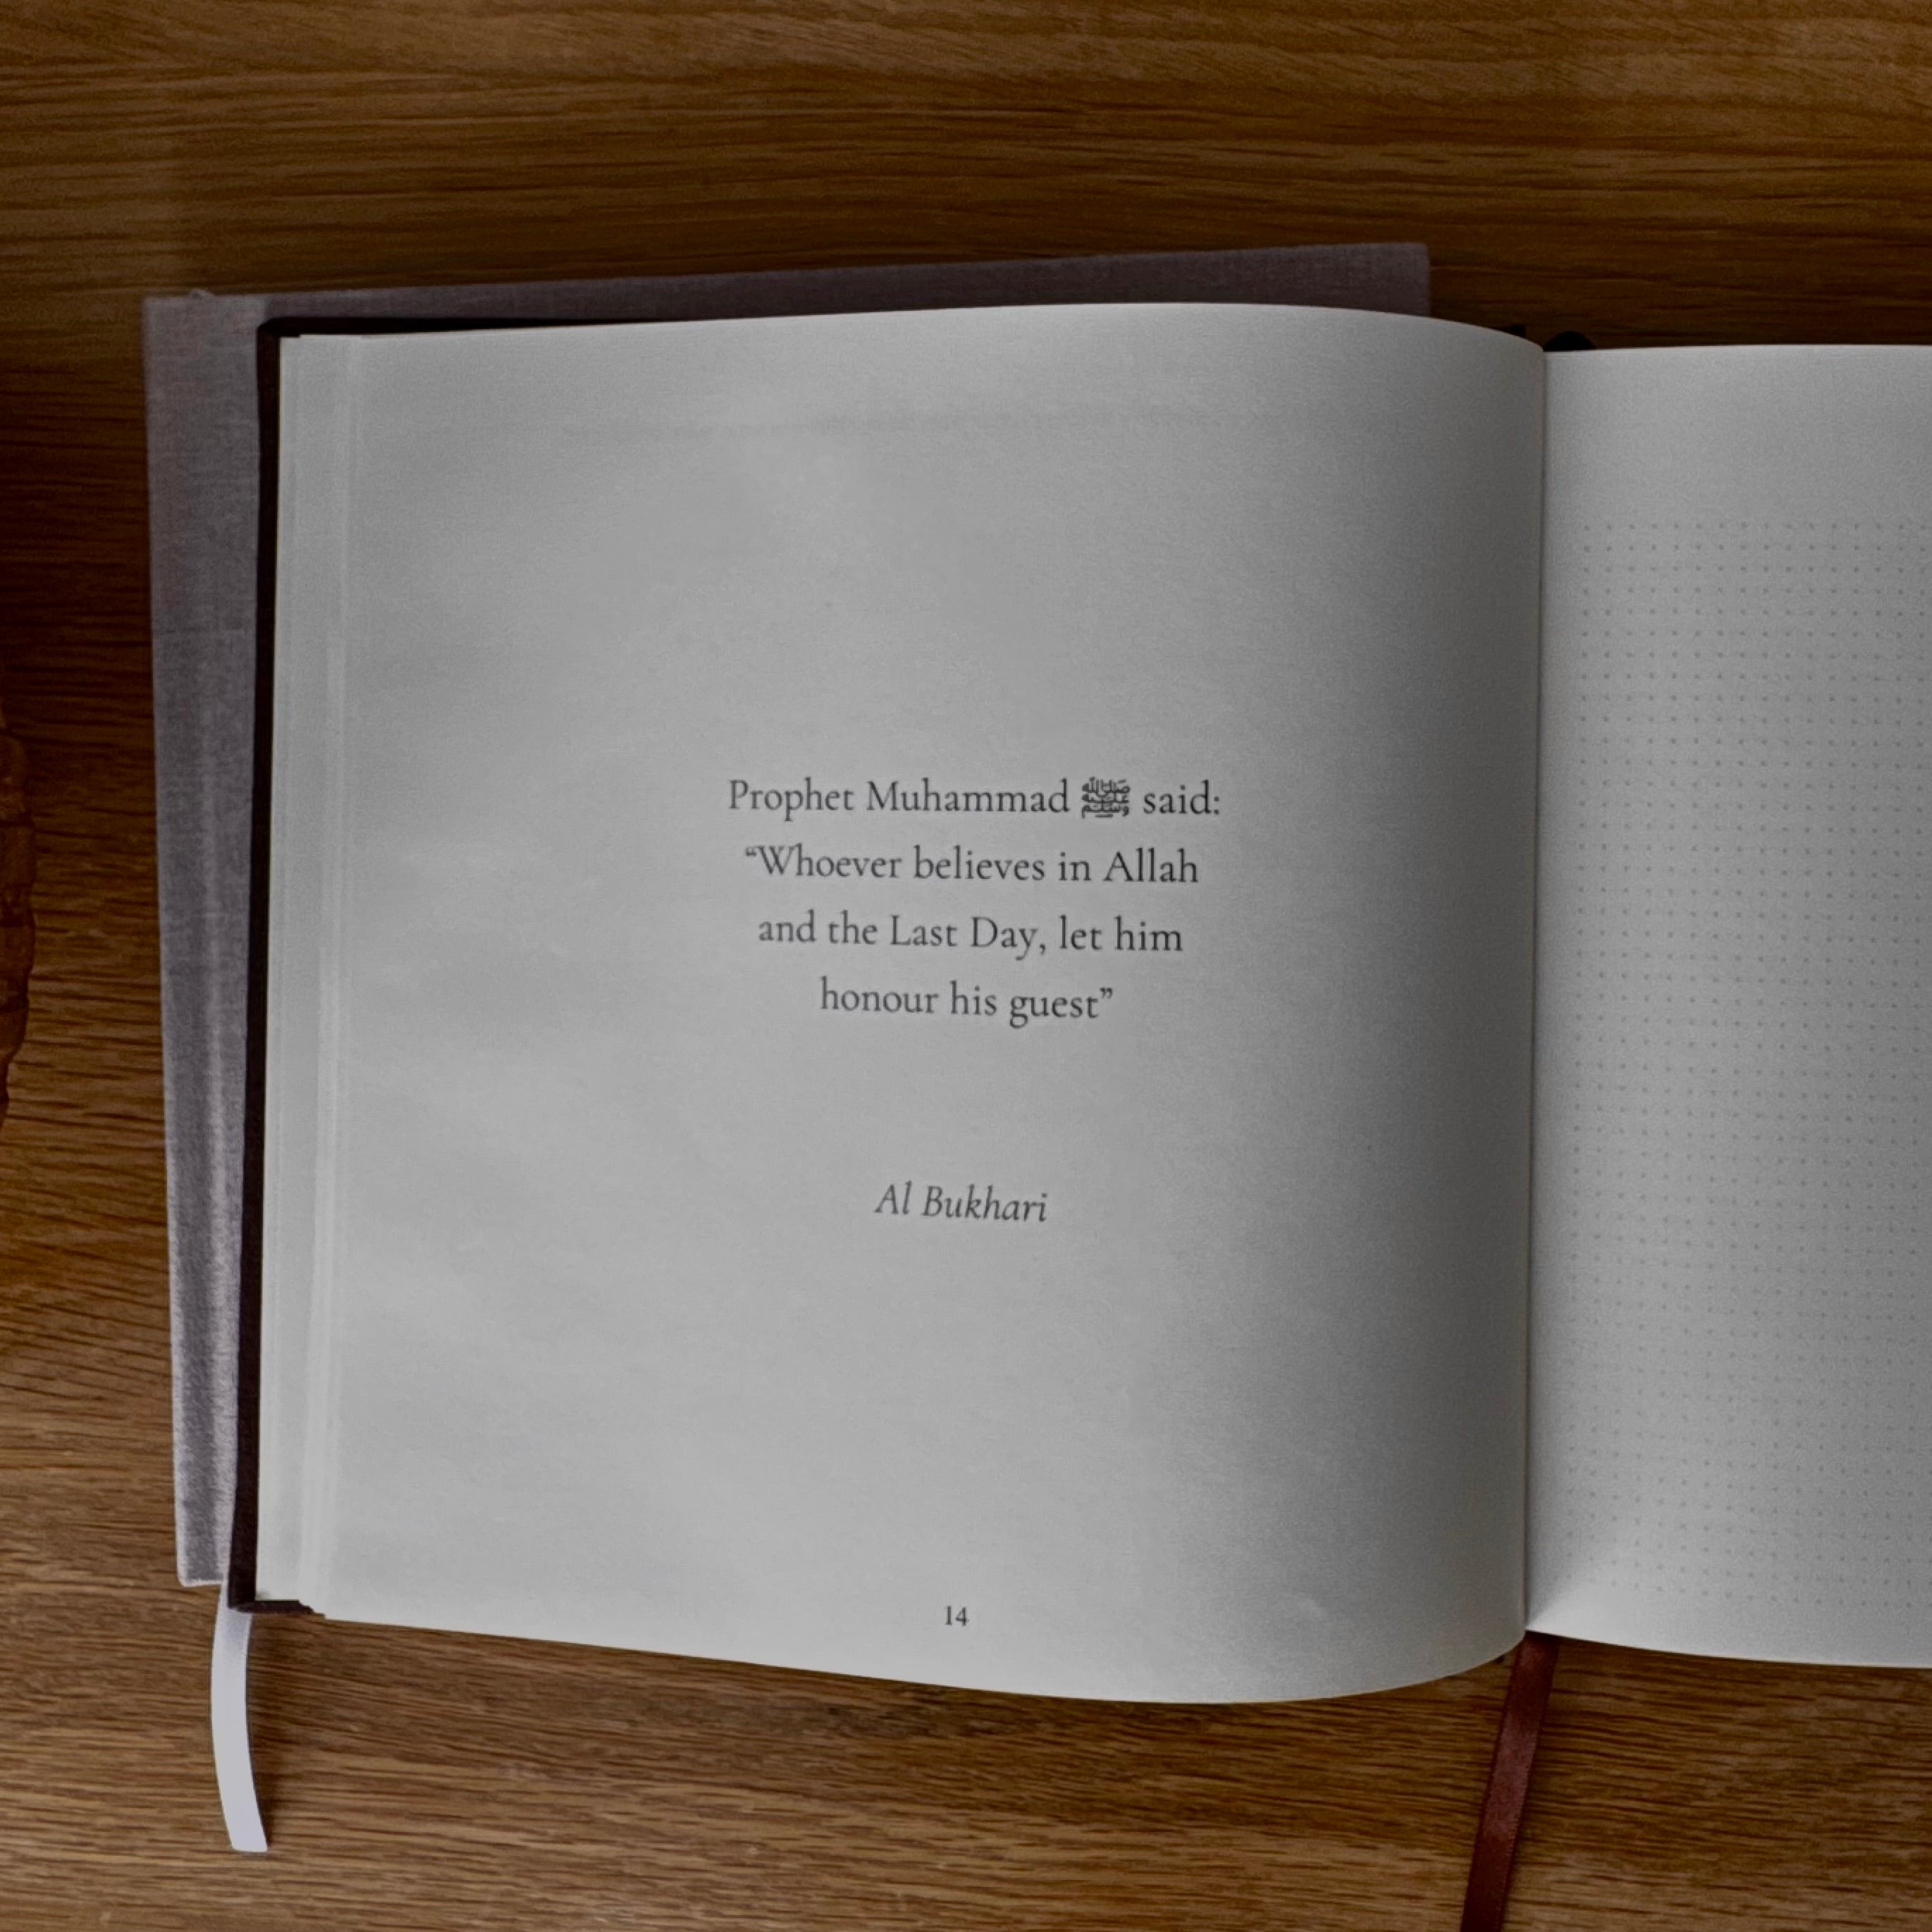 Prophet Muhammad ﷺ said:
“Whoever believes in Allah
and the Last Day, let him
honour his guest”
Al Bukhari
14